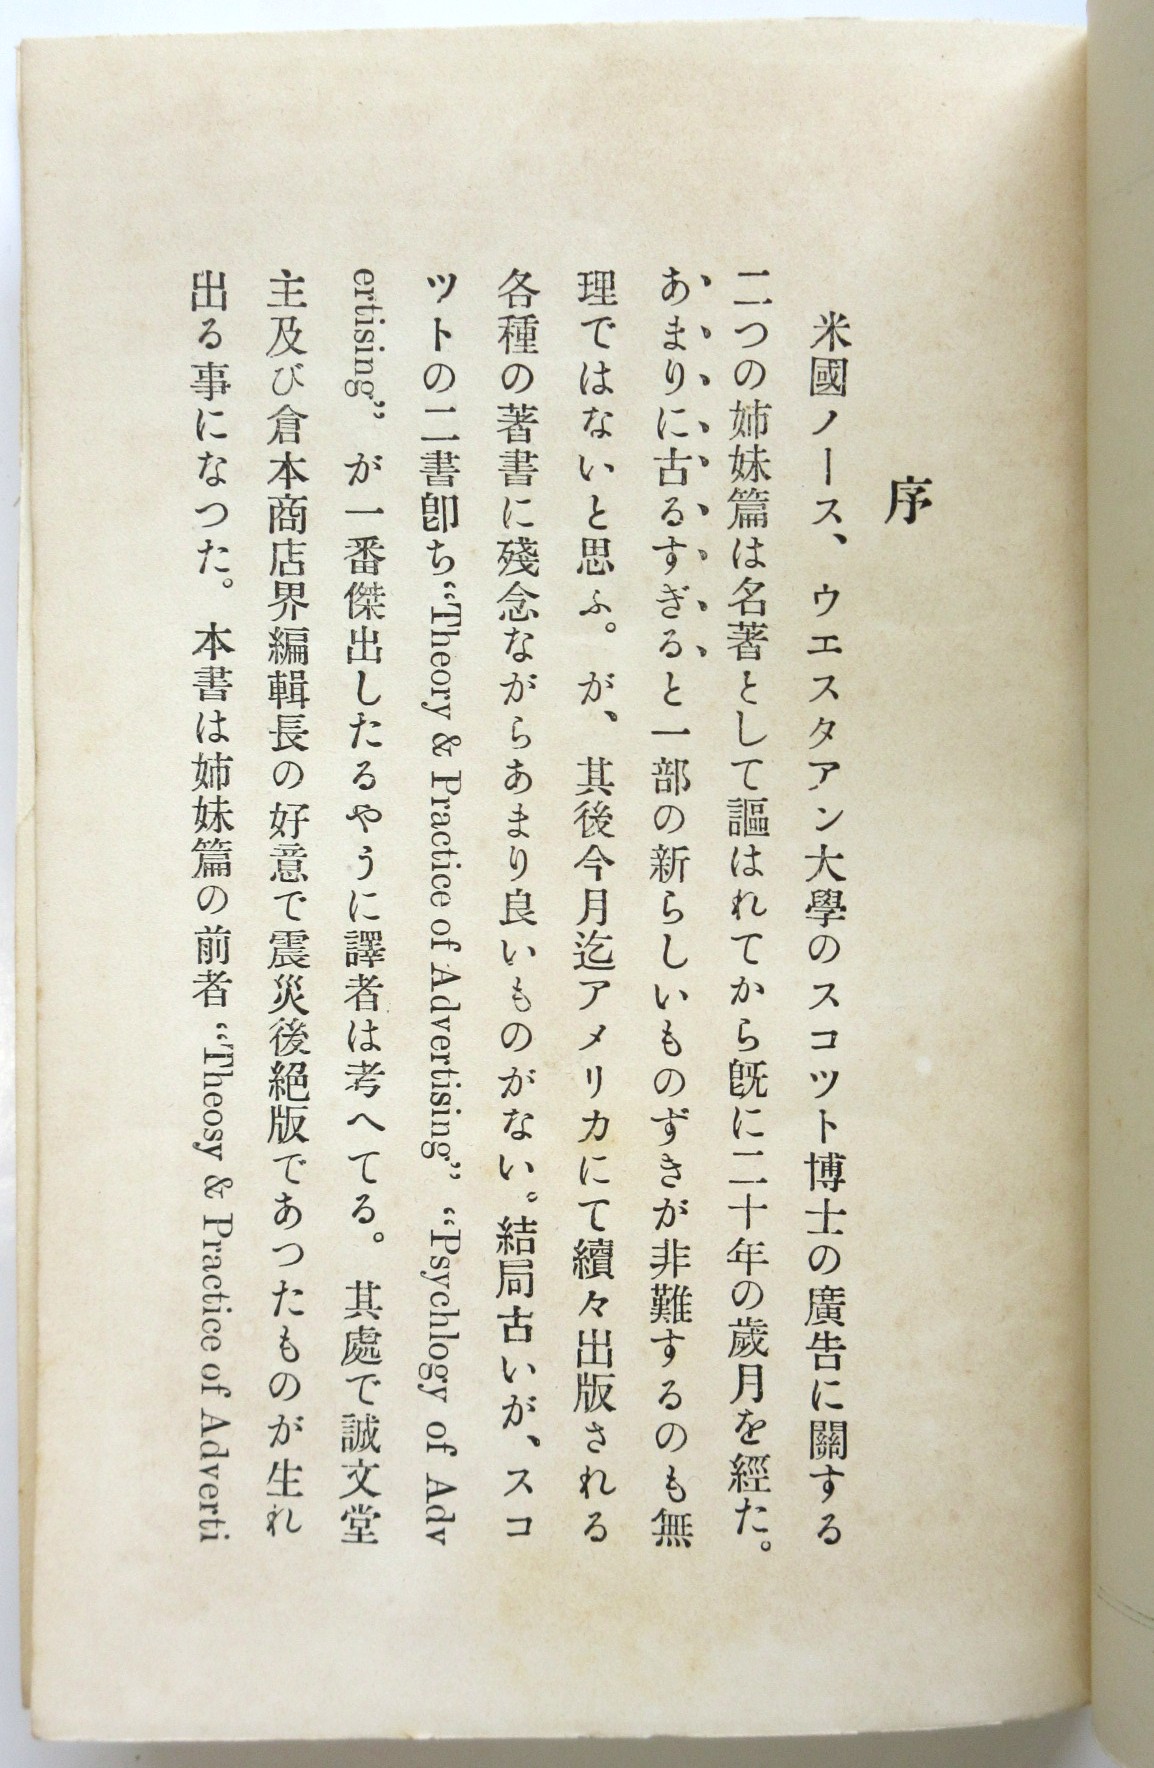 序
米國ノース、ウエスタアン大學のスコツト博士の廣告に關する
二つの姉妹篇は名著として謳はれてから既に二十年の歲月を經た。
あまりに古るすぎると一部の新らしいものずきが非難するのも無
理ではないと思ふ。が、其後今月迄アメリカにて續々出版される
各種の著書に殘念ながらあまり良いものがない。結局古いが、スコ
ツトの二書卽ち“Theory & Practice of Advertising” “Psychlogy of Adv
ertising” が一番傑出したるやうに譯者は考へてる。其處で誠文堂
主及び倉本商店界編輯長の好意で震災後絕版であつたものが生れ
出る事になつた。本書は姉妹篇の前者 “Theosy & Practice of Adverti